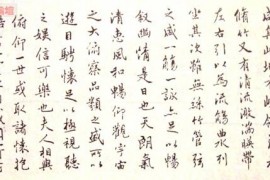 脩竹又有清流激湍映帶
左右引以為流觴曲水列
坐其次雖無絲竹管弦
之盛一觴一詠亦足以暢
敘幽情是日也天朗氣
清惠風和暢仰觀宇宙
之大俯察品類之盛所以
遊目騁懷足以極視聽
之娛信可樂也夫人相與
俯仰一世或取諸懷抱